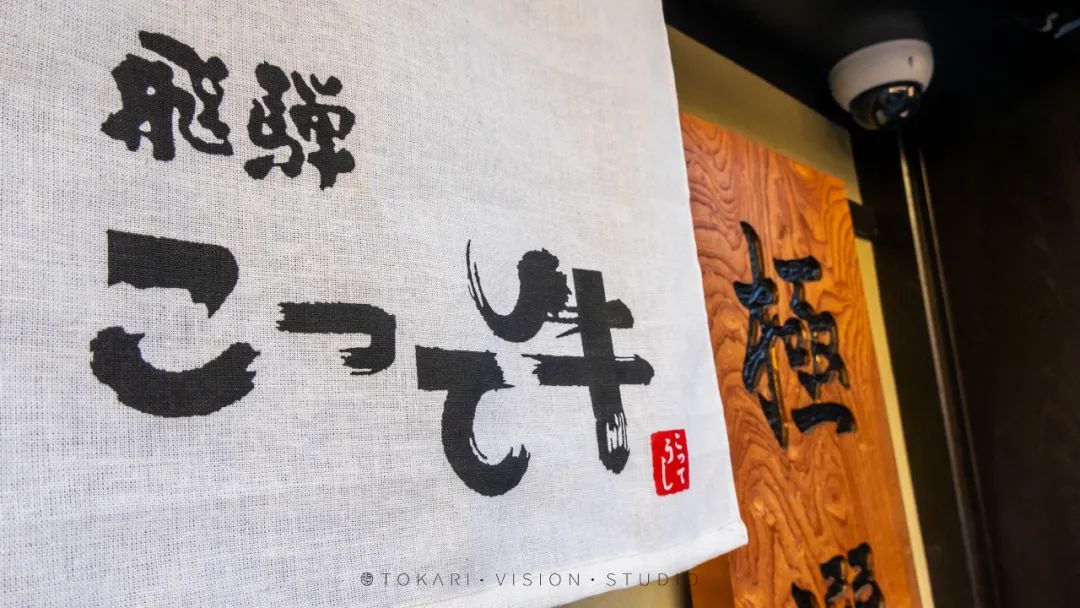 飛騨
こって牛
こって
うし
極
TOKARI・VISION・STUDIO